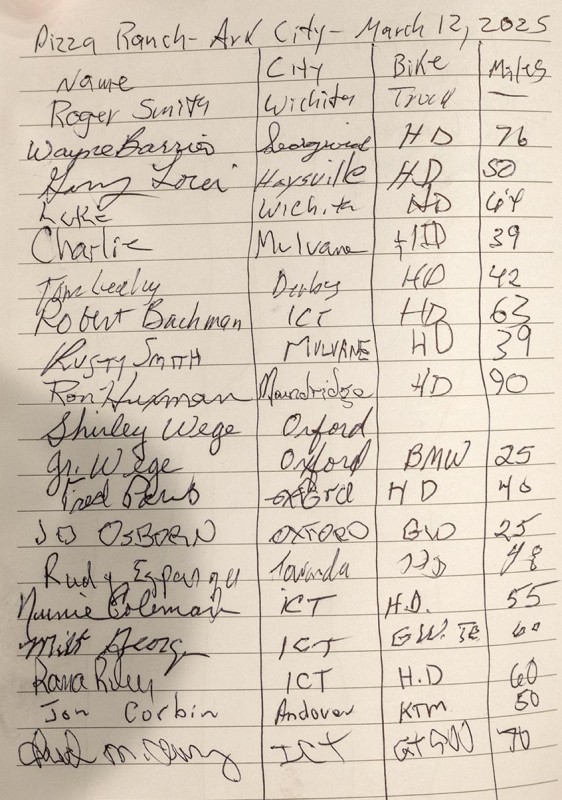 Pizza Ranch - Ark City - March 12, 2025
Name City Bike Miles
Roger Smith Wichita Truck —
Wayne Barrios HD 76
Gary Haysville HD 50
Luke Wichita HD 64
Charlie Mulvane HD 39
Tom Derby HD 42
Robert Bachman ICT HD 63
Rusty Smith MULVANE HD 39
Ron Huxman Moundridge HD 90
Shirley Wege Oxford
Jr. Wege Oxford BMW 25
Fred HD 40
JD OSBORN OXFORD GW 25
Rudy Towanda HD 48
Coleman ICT H.D. 55
Milt George ICT GW. 60
Rana Riley ICT H.D 60
Jon Corbin Andover KTM 50
ICT 70